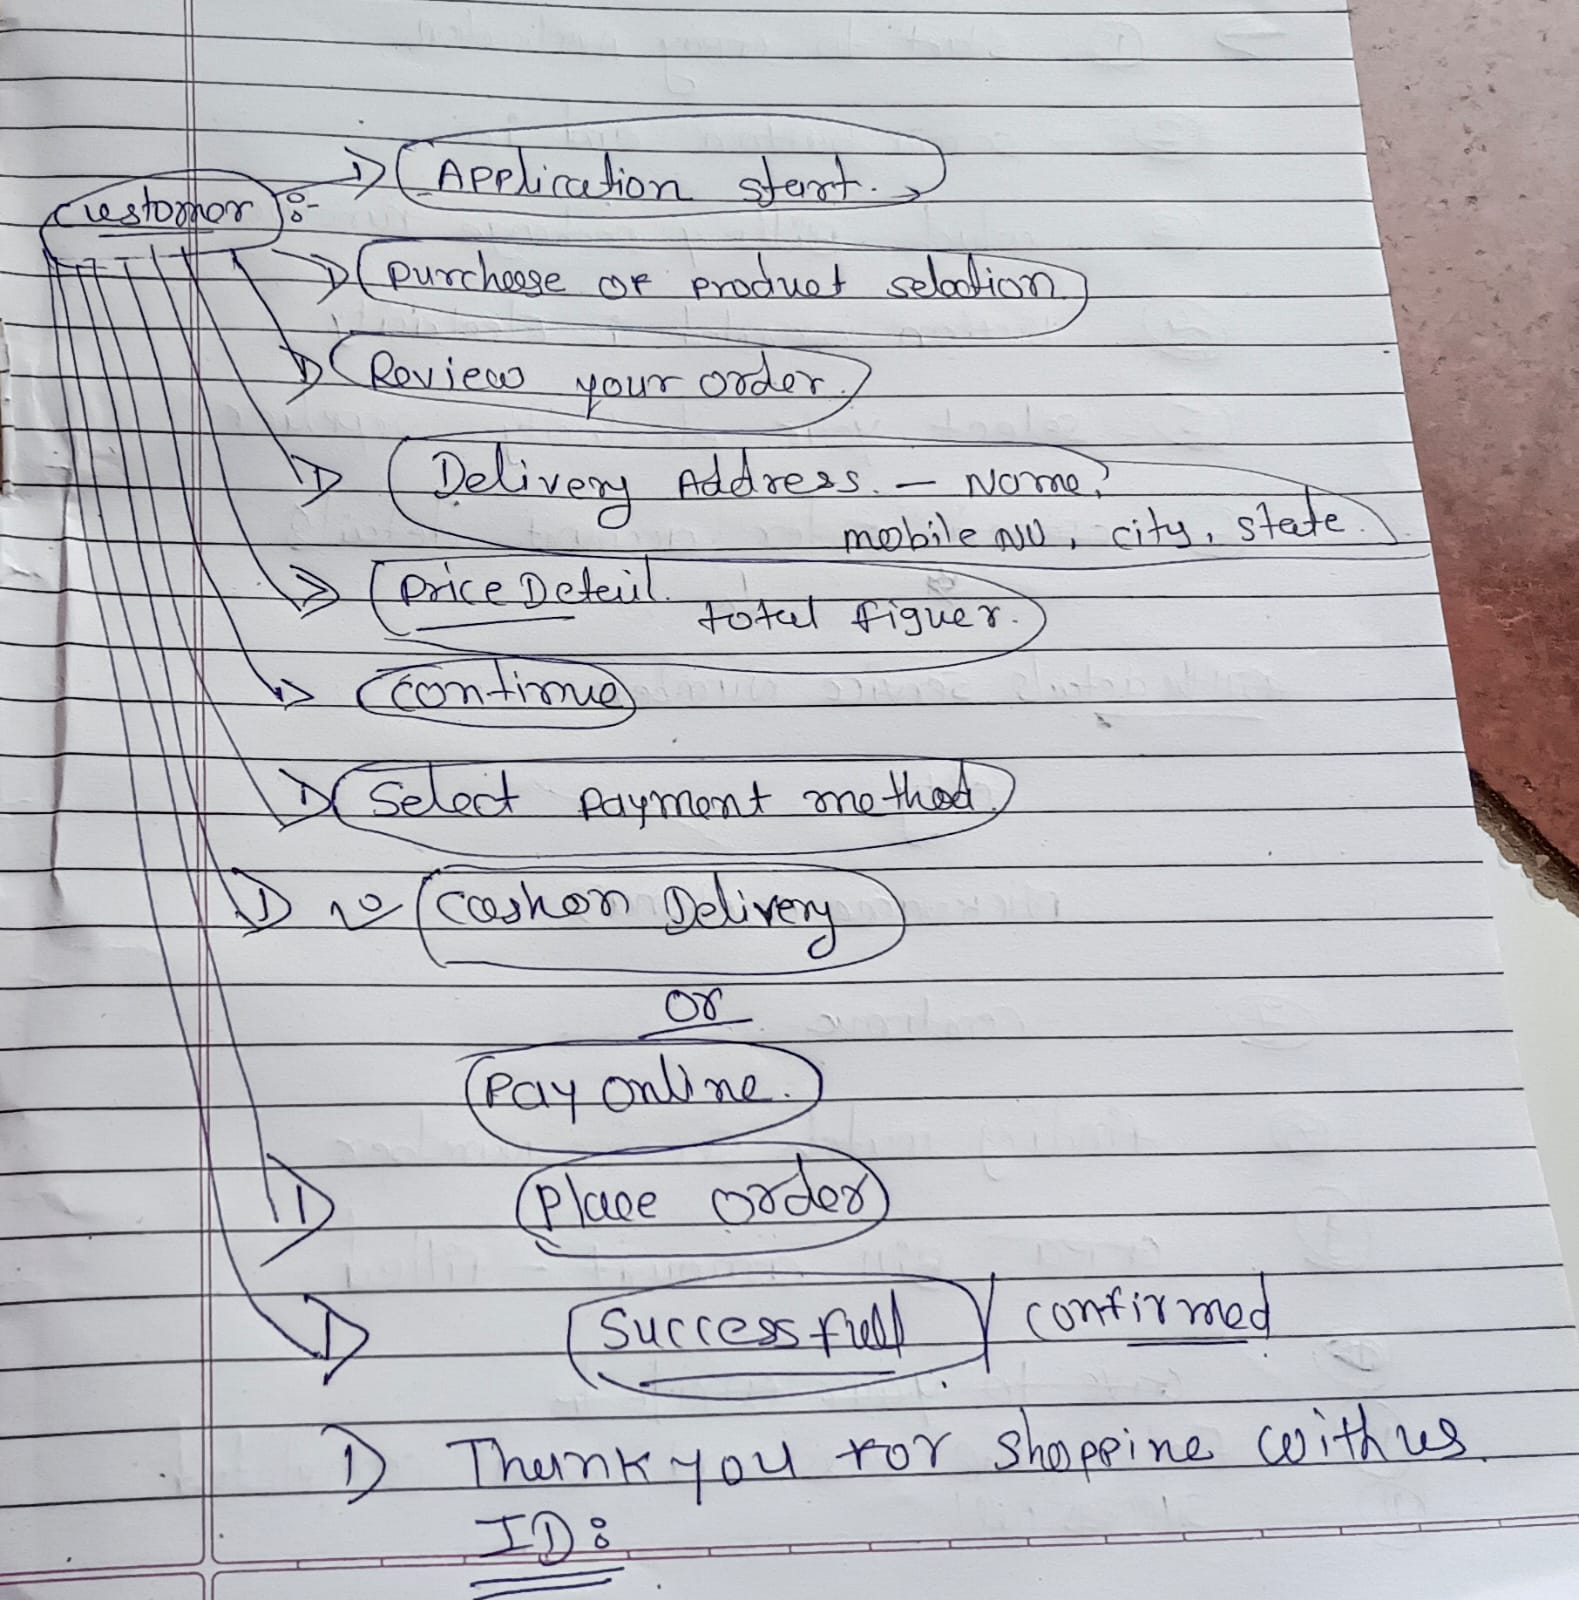 Application start.
Customor :-
purchase of product selection.
Review your order.
Delivery Address. - Name,
mobile NO, city, state.
price Detail.
total figuer.
continue
Select payment method.
Cash on Delivery
or
Pay online.
Place order
Successfull / confirmed
Thank you for shoppine with us.
ID: